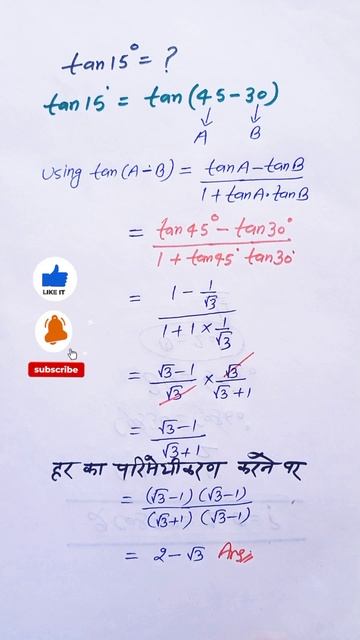 tan15° = ?
tan15° = tan(45-30)
A B
Using tan(A-B) = tanA-tanB / 1+tanA·tanB
= tan45° - tan30° / 1 + tan45° tan30°
= 1 - 1/√3 / 1+1×1/√3
LIKE IT
subscribe
= √3-1/√3 × √3/√3+1
= √3-1/√3+1
हर का परिमेयीकरण करने पर
= (√3-1) (√3-1) / (√3+1) (√3-1)
= 2-√3 Ans